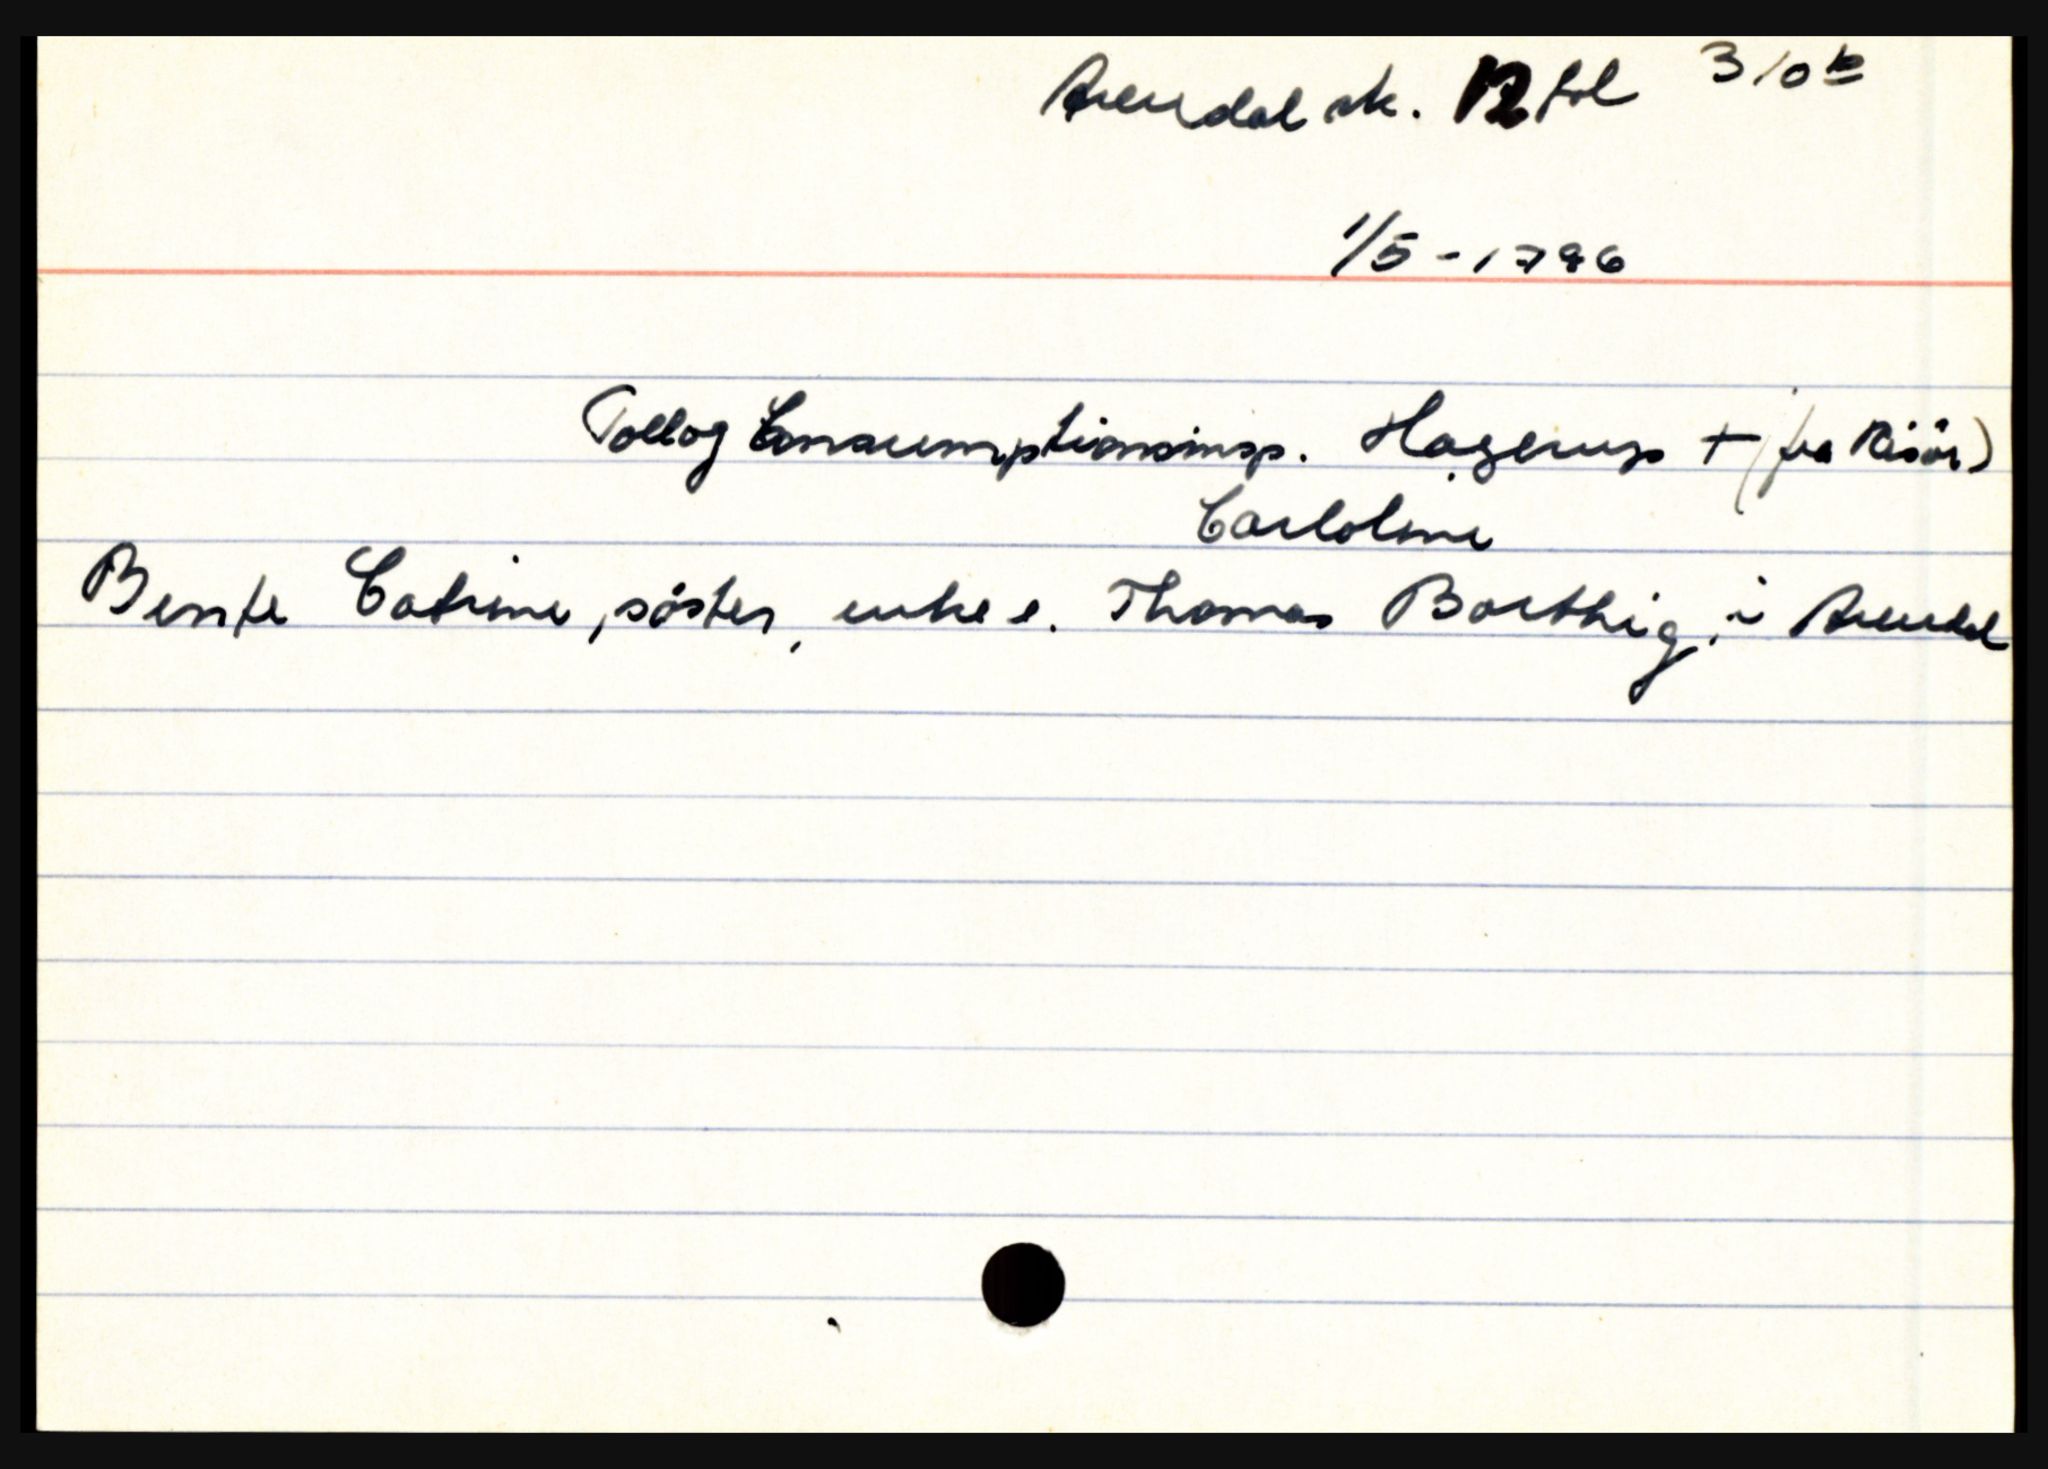 Arendal sk. 12 fol 310 b
1/5 - 1796
Toll og Consumptionsinsp. Hagerup + (fra Risör)
Carloline
Bente Catrine, söster, enke e. Thomas Barthig, i Arendal